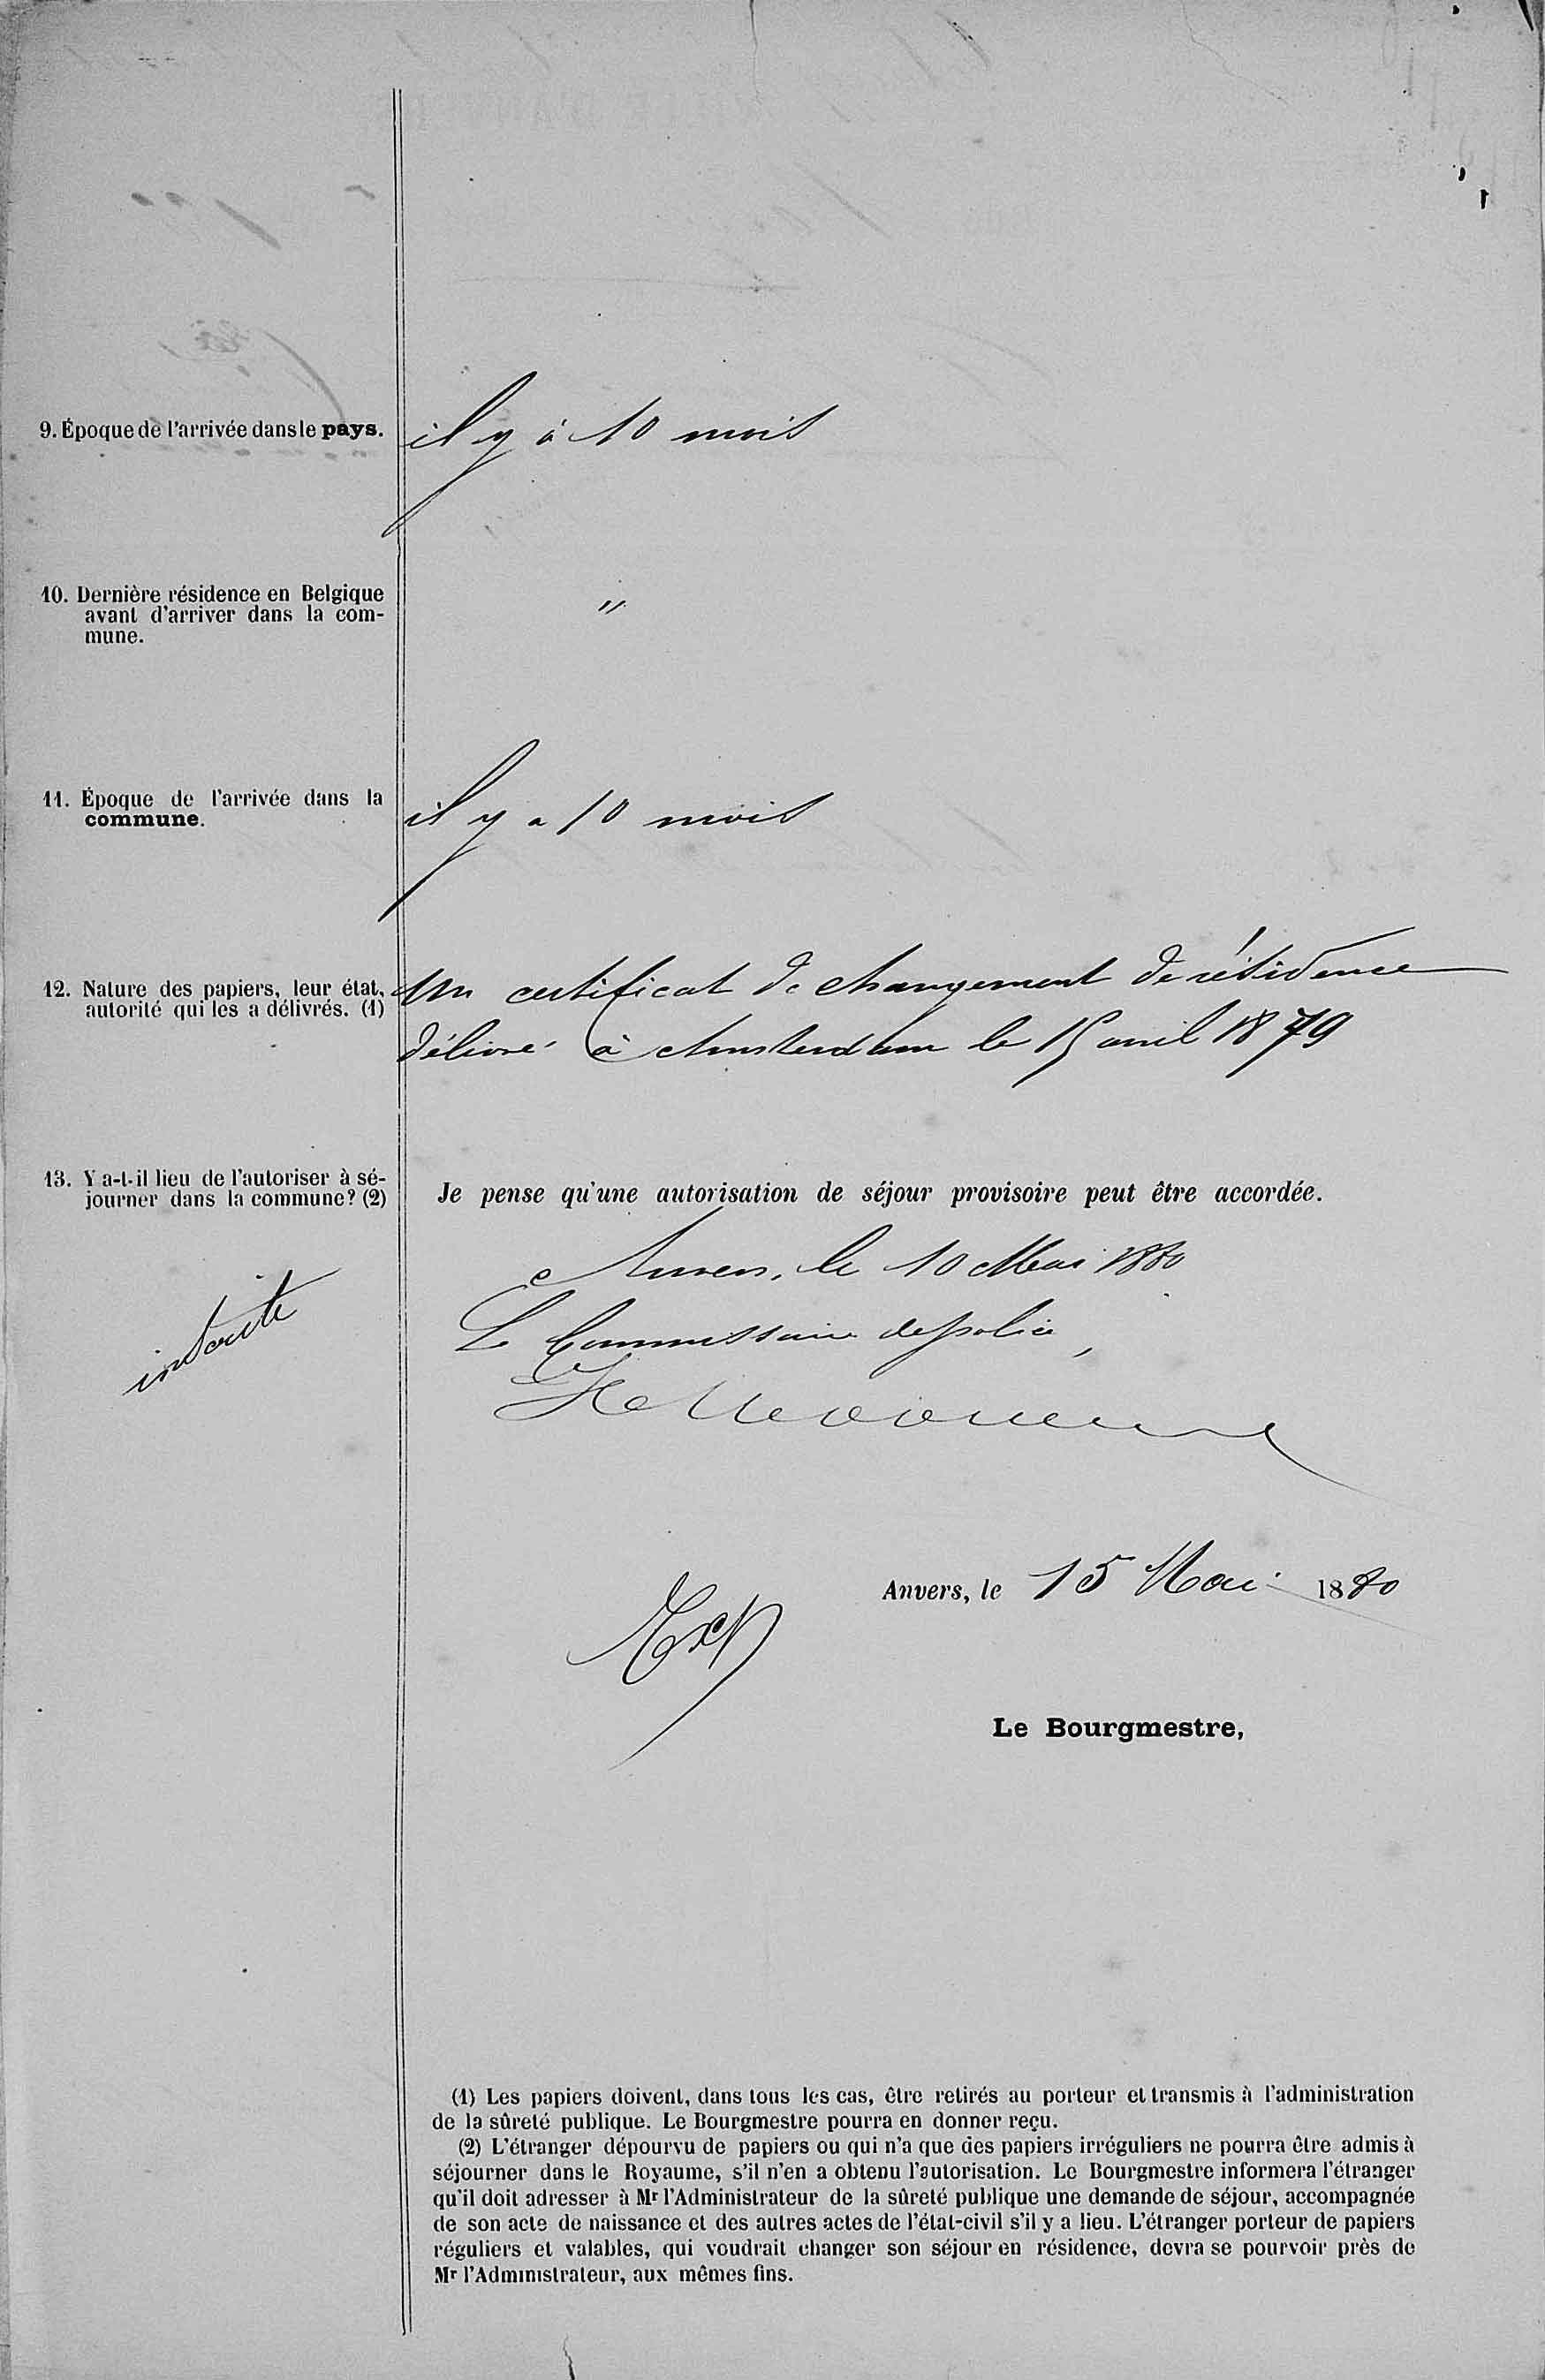 9. Époque de l'arrivée dans le pays.
il y à 10 mois
10. Dernière résidence en Belgique
avant d'arriver dans la com-
mune.
"
11. Époque de l'arrivée dans la
commune.
il y a 10 mois
12. Nature des papiers, leur état,
autorité qui les a délivrés. (1)
Un certificat de changement de résidence
délivré à Amsterdam le 15 avril 1879
13. Y a-t-il lieu de l'autoriser à sé-
journer dans la commune? (2)
Je pense qu'une autorisation de séjour provisoire peut être accordée.
Anvers, le 10 Mai 1880
Le Commissaire de police,
inscrite
Anvers, le 15 Mai 1880
Exp
Le Bourgmestre,
(1) Les papiers doivent, dans tous les cas, être retirés au porteur et transmis à l'administration
de la sûreté publique. Le Bourgmestre pourra en donner reçu.
(2) L'étranger dépourvu de papiers ou qui n'a que des papiers irréguliers ne pourra être admis à
séjourner dans le Royaume, s'il n'en a obtenu l'autorisation. Le Bourgmestre informera l'étranger
qu'il doit adresser à Mr l'Administrateur de la sûreté publique une demande de séjour, accompagnée
de son acte de naissance et des autres actes de l'état-civil s'il y a lieu. L'étranger porteur de papiers
réguliers et valables, qui voudrait changer son séjour en résidence, devra se pourvoir près de
Mr l'Administrateur, aux mêmes fins.